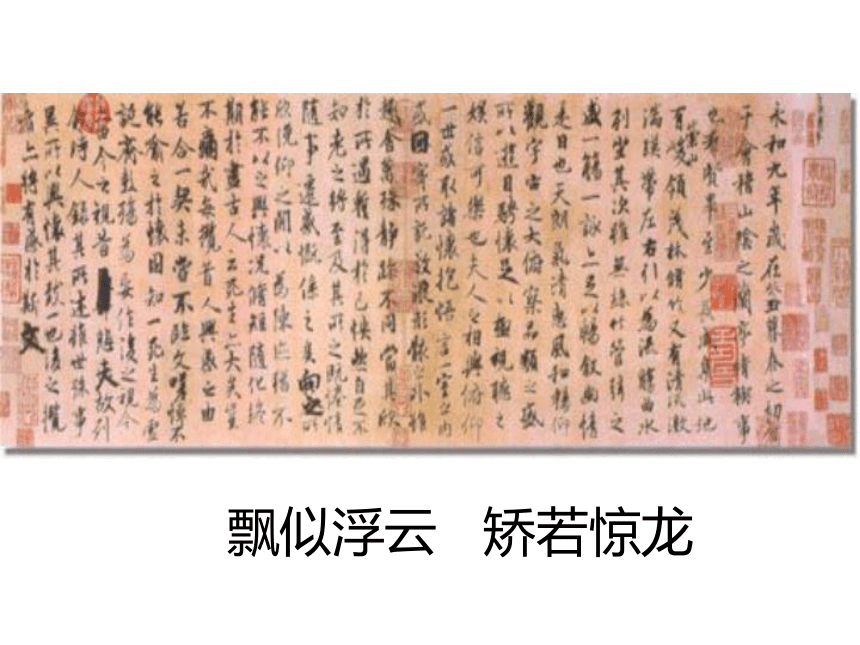 永和九年歲在癸丑暮春之初會
于會稽山陰之蘭亭脩稧事
也群賢畢至少長咸集此地
有崇山峻領茂林脩竹又有清流激
湍暎帶左右引以為流觴曲水
列坐其次雖無絲竹管弦之
盛一觴一詠亦足以暢敘幽情
是日也天朗氣清惠風和暢仰
觀宇宙之大俯察品類之盛
所以遊目騁懷足以極視聽之
娛信可樂也夫人之相與俯仰
一世或取諸懷抱悟言一室之內
或因寄所託放浪形骸之外雖
趣舍萬殊靜躁不同當其欣
於所遇暫得於己怏然自足不
知老之將至及其所之既惓情
隨事遷感慨係之矣向之所
欣俛仰之間以為陳迹猶不
能不以之興懷況脩短隨化終
期於盡古人云死生亦大矣豈
不痛哉每攬昔人興感之由
若合一契未嘗不臨文嗟悼不
能喻之於懷固知一死生為虛
誕齊彭殤為妄作後之視今
亦由今之視昔悲夫故列
敘時人錄其所述雖世殊事
異所以興懷其致一也後之攬
者亦將有感於斯文
飘似浮云 矫若惊龙